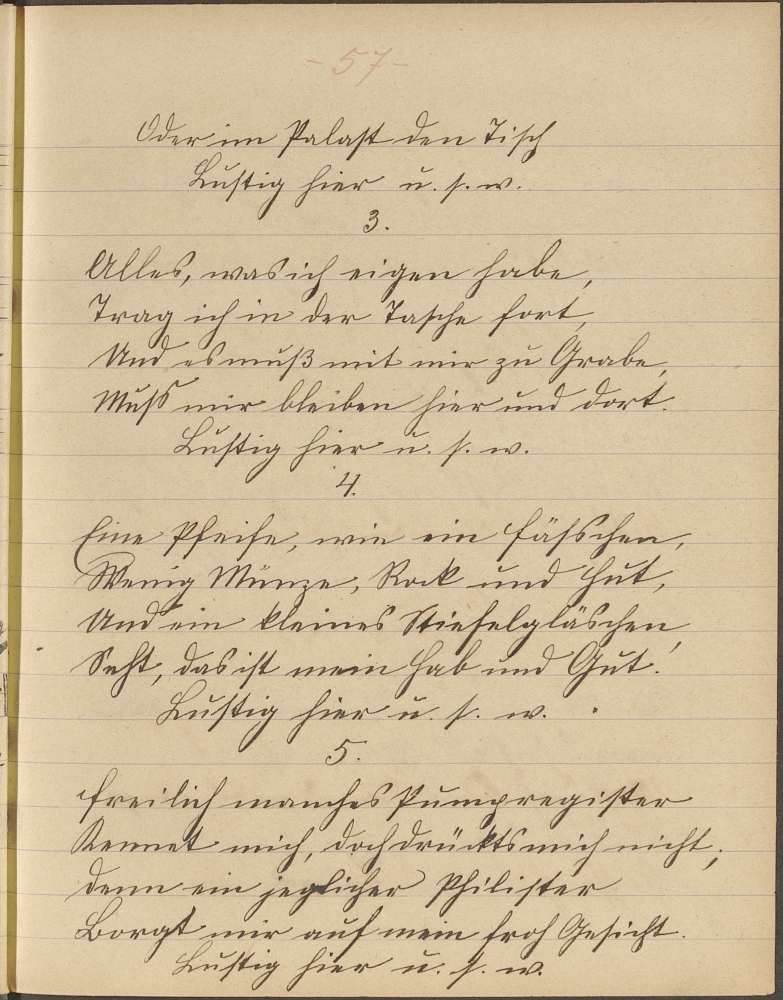 - 57 -
Oder im Palast den Tisch
Lustig hier u. s. w.
3.
Alles, was ich eigen habe,
Trag ich in der Tasche fort,
Und es muß mit mir zu Grabe,
Muss mir bleiben hier und dort.
Lustig hier u. s. w.
4.
Eine Pfeife, wie ein Fässchen,
Wenig Münze, Rock und Hut,
Und ein kleines Stiefelgläschen,
Seht, das ist mein Hab und Gut!
Lustig hier u. s. w.
5.
Freilich manches Pumpregister
Kennet mich, doch drückts mich nicht;
Denn ein jeglicher Philister
Borgt mir auf mein froh Gesicht.
Lustig hier u. s. w.